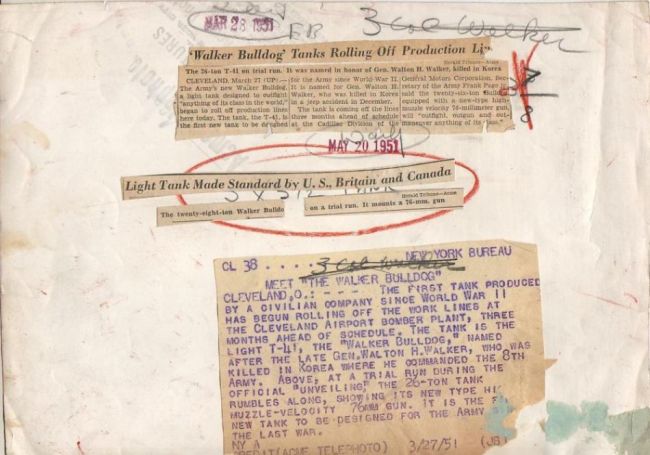 MAR 28 1951
FB
3 col Walker
'Walker Bulldog' Tanks Rolling Off Production Li
The 26-ton T-41 on trial run. It was named in honor of Gen. Walton H. Walker, killed in Korea
Herald Tribune—Acme
CLEVELAND, March 27 (UP).—
The Army's new Walker Bulldog,
a light tank designed to outfight
"anything of its class in the world,"
began to roll off production lines
here today. The tank, the T-41, is
the first new tank to be designed
for the Army since World War II.
It is named for Gen. Walton H.
Walker, who was killed in Korea
in a jeep accident in December.
The tank is coming off the lines
three months ahead of schedule
at the Cadillac Division of the
General Motors Corporation. Sec-
retary of the Army Frank Pace jr.
said the twenty-six-ton
equipped with a new-type high-
muzzle velocity 76-millimeter gun,
will "outfight, outgun and out-
maneuver anything of its class."
8
MAY 20 1951
Light Tank Made Standard by U. S., Britain and Canada
Herald Tribune—Acme
The twenty-eight-ton Walker Bulldo
on a trial run. It mounts a 76-mm. gun
CL 38 . . . . NEW YORK BUREAU
3 col Walker
MEET "THE WALKER BULLDOG"
CLEVELAND,O.: - - - THE FIRST TANK PRODUCED
BY A CIVILIAN COMPANY SINCE WORLD WAR II
HAS BEGUN ROLLING OFF THE WORK LINES AT
THE CLEVELAND AIRPORT BOMBER PLANT, THREE
MONTHS AHEAD OF SCHEDULE. THE TANK IS THE
LIGHT T-41, THE "WALKER BULLDOG," NAMED
AFTER THE LATE GEN.WALTON H.WALKER, WHO WAS
KILLED IN KOREA WHERE HE COMMANDED THE 8TH
ARMY. ABOVE, AT A TRIAL RUN DURING THE
OFFICIAL "UNVEILING," THE 26-TON TANK
RUMBLES ALONG, SHOWING ITS NEW TYPE HI
MUZZLE-VELOCITY 76MM GUN. IT IS THE
NEW TANK TO BE DESIGNED FOR THE ARMY
THE LAST WAR.
NY A
CREDIT(ACME TELEPHOTO) 3/27/51 (JB)